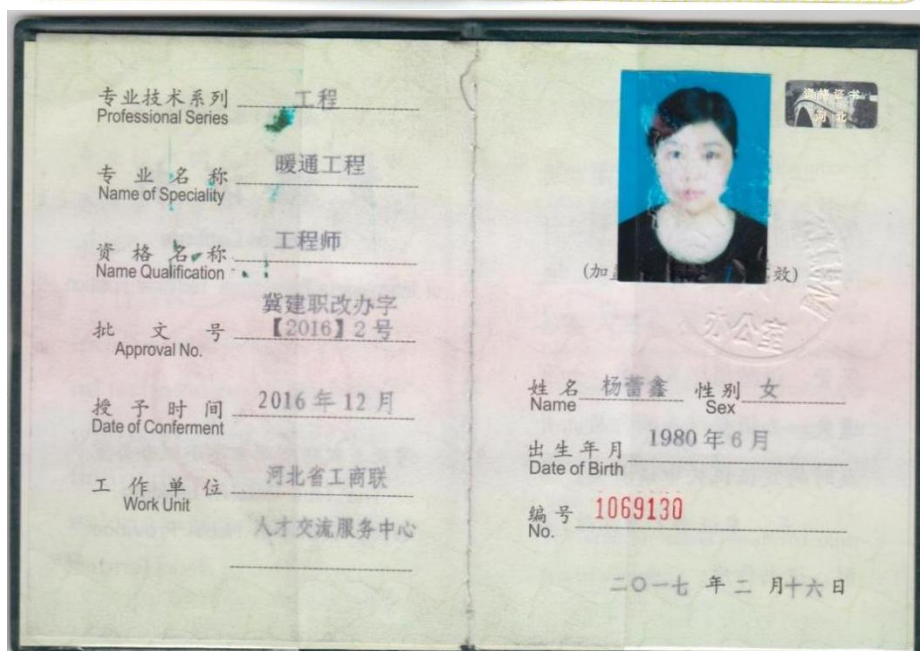 专业技术系列 工程
Professional Series
专业名称 暖通工程
Name of Speciality
资格名称 工程师
Name Qualification
冀建职改办字
批文号 【2016】2号
Approval No.
授予时间 2016年12月
Date of Conferment
工作单位 河北省工商联
Work Unit
人才交流服务中心
河北
(加
效)
办公室
姓名 杨蕾鑫 性别 女
Name Sex
出生年月 1980年6月
Date of Birth
编号 1069130
No.
二〇一七 年 二 月十六日